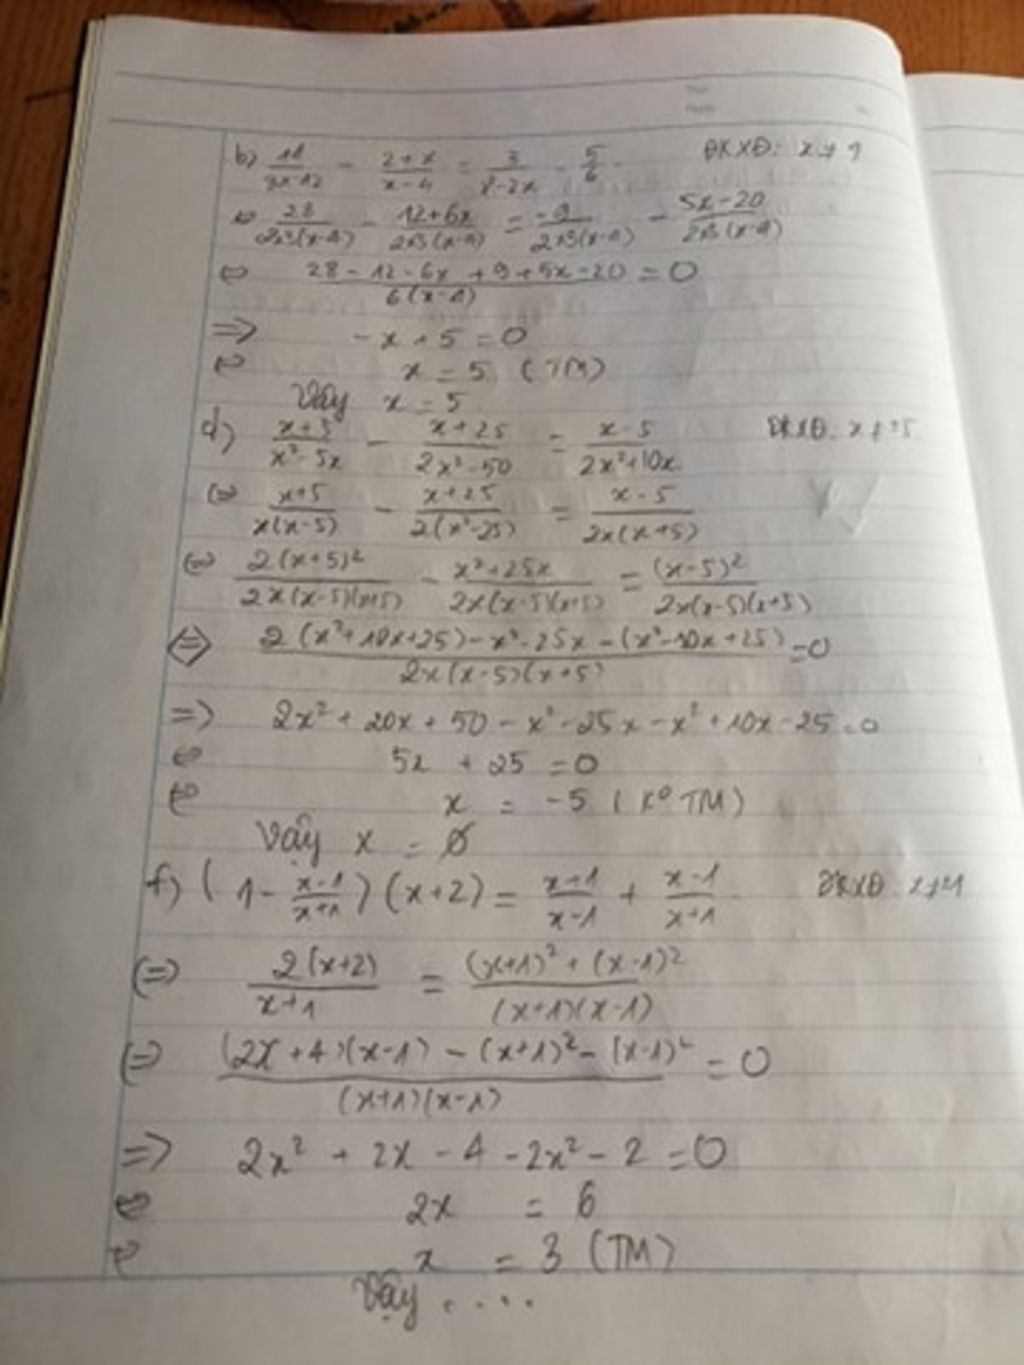 b) 14/(3x-12) - (2+x)/(x-4) = 3/(8-2x) - 5/6 ĐKXĐ: x≠4
⇔ 28/(2×3(x-4)) - (12+6x)/(2×3(x-4)) = -9/(2×3(x-4)) - (5x-20)/(2×3(x-4))
⇔ (28-12-6x+9+5x-20)/(6(x-4)) = 0
⇒ -x+5=0
⇔ x=5 (TM)
Vậy x=5
d) (x+5)/(x²-5x) - (x+25)/(2x²-50) = (x-5)/(2x²+10x) ĐKXĐ: x≠±5
⇔ (x+5)/(x(x-5)) - (x+25)/(2(x²-25)) = (x-5)/(2x(x+5))
⇔ 2(x+5)²/(2x(x-5)(x+5)) - (x²+25x)/(2x(x-5)(x+5)) = (x-5)²/(2x(x-5)(x+5))
⇔ (2(x²+10x+25)-x²-25x-(x²-10x+25))/(2x(x-5)(x+5)) = 0
⇒ 2x²+20x+50-x²-25x-x²+10x-25=0
⇔ 5x+25=0
⇔ x = -5 (K° TM)
Vậy x = ∅
f) (1-(x-1)/(x+1))(x+2) = (x+1)/(x-1) + (x-1)/(x+1) ĐKXĐ: x≠±1
⇔ 2(x+2)/(x+1) = ((x+1)²+(x-1)²)/((x+1)(x-1))
⇔ ((2x+4)(x-1)-(x+1)²-(x-1)²)/((x+1)(x-1)) = 0
⇒ 2x²+2x-4-2x²-2=0
⇔ 2x = 6
⇔ x = 3 (TM)
Vậy ....